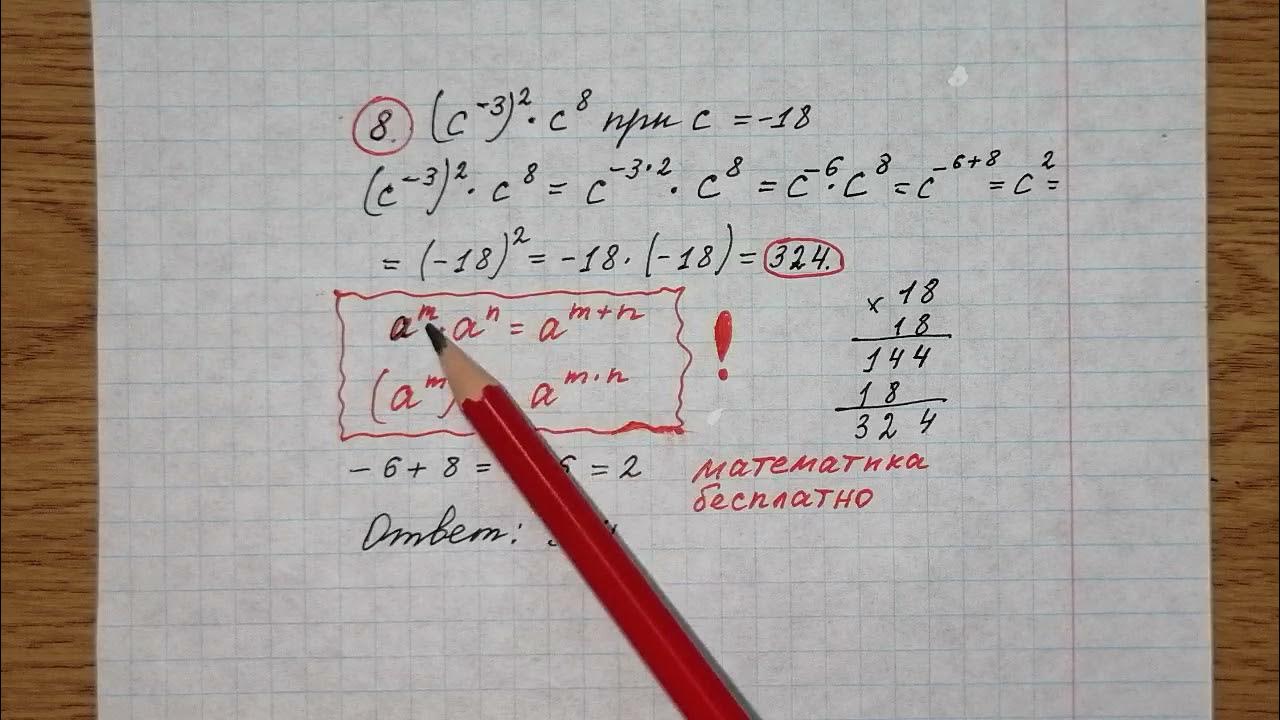 8. (c⁻³)² · c⁸ при c = -18
(c⁻³)² · c⁸ = c⁻³·² · c⁸ = c⁻⁶ · c⁸ = c⁻⁶⁺⁸ = c² =
= (-18)² = -18 · (-18) = 324.
aᵐ · aⁿ = aᵐ⁺ⁿ !
(aᵐ) aᵐ·ⁿ
× 18
18
144
18
324
- 6 + 8 = 6 = 2
математика
бесплатно
Ответ: